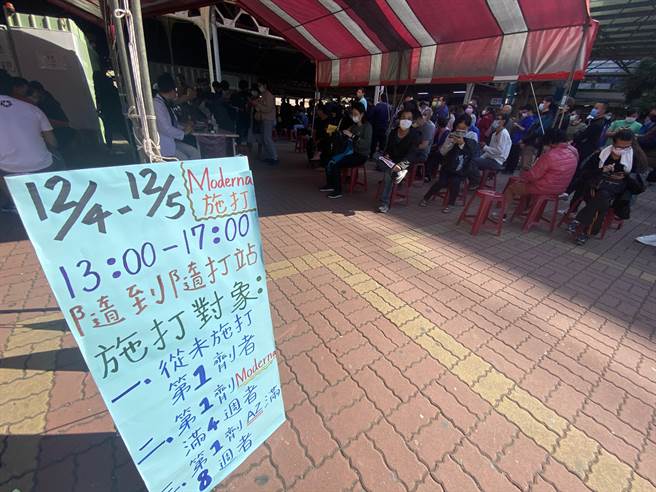 12/4-12/5 Moderna
施打
13:00-17:00
隨到隨打站
施打對象:
一. 從未施打
第1劑者
二. 第1劑Moderna
滿4週者
三. 第1劑AZ滿
8週者